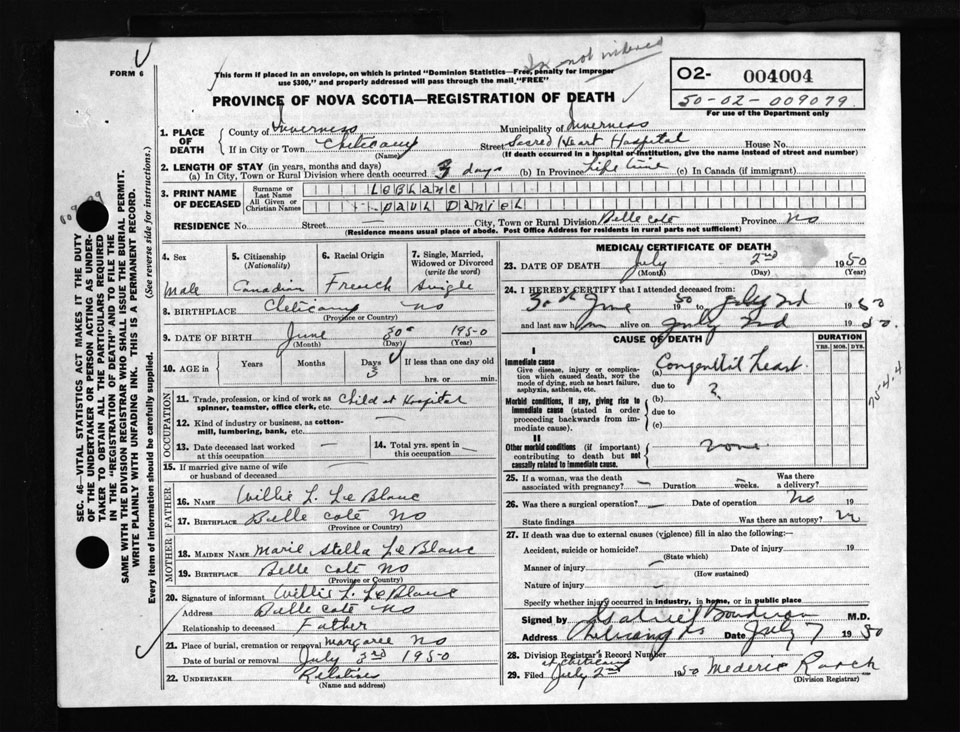 FORM 6
This form if placed in an envelope, on which is printed "Dominion Statistics—Free, penalty for improper
use $300," and properly addressed will pass through the mail "FREE"
not indexed
O2- 004004
50-02-009079
For use of the Department only
PROVINCE OF NOVA SCOTIA—REGISTRATION OF DEATH
1. PLACE OF DEATH
County of Inverness Municipality of Inverness
If in City or Town Cheticamp Street Sacred Heart Hospital House No.
(Name) (If death occurred in a hospital or institution, give the name instead of street and number)
2. LENGTH OF STAY (in years, months and days)
(a) In City, Town or Rural Division where death occurred 3 days (b) In Province Life time (c) In Canada (if immigrant)
3. PRINT NAME OF DECEASED
Surname or Last Name LeBlanc
All Given or Christian Names Paul Daniel
RESIDENCE No. Street City, Town or Rural Division Belle cote Province NS
(Residence means usual place of abode. Post Office Address for residents in rural parts not sufficient)
4. Sex
male
5. Citizenship (Nationality)
Canadian
6. Racial Origin
French
7. Single, Married, Widowed or Divorced (write the word)
Single
8. BIRTHPLACE Cheticamp NS
(Province or Country)
9. DATE OF BIRTH June 30th 1950
(Month) (Day) (Year)
10. AGE in Years Months Days If less than one day old
3 hrs. or min.
OCCUPATION
11. Trade, profession, or kind of work as
spinner, teamster, office clerk, etc. Child at Hospital
12. Kind of industry or business, as cotton-
mill, lumbering, bank, etc. —
13. Date deceased last worked at this occupation —
14. Total yrs. spent in this occupation —
15. If married give name of wife
or husband of deceased —
FATHER
16. NAME Willie L. LeBlanc
17. BIRTHPLACE Belle cote NS
(Province or Country)
MOTHER
18. MAIDEN NAME Marie Stella LeBlanc
19. BIRTHPLACE Belle cote NS
(Province or Country)
20. Signature of informant Willis L. LeBlanc
Address Belle cote NS
Relationship to deceased Father
21. Place of burial, cremation or removal Margaree NS
Date of burial or removal July 3rd 1950
22. UNDERTAKER Relatives
(Name and address)
MEDICAL CERTIFICATE OF DEATH
23. DATE OF DEATH July 2nd 1950
(Month) (Day) (Year)
24. I HEREBY CERTIFY that I attended deceased from:
30th June 1950 to July 2nd 1950
and last saw him alive on July 2nd 1950.
CAUSE OF DEATH
DURATION
YRS. MOS. DYS.
I
Immediate cause
Give disease, injury or complica-
tion which caused death, NOT the
mode of dying, such as heart failure,
asphyxia, asthenia, etc.
(a) Congenital heart
due to
Morbid conditions, if any, giving rise to
immediate cause (stated in order
proceeding backwards from im-
mediate cause).
(b) ?
due to
(c)
754.4
II
Other morbid conditions (if important)
contributing to death but not
causally related to immediate cause.
none
25. If a woman, was the death
associated with pregnancy? — Duration weeks. Was there a delivery?
26. Was there a surgical operation? — Date of operation No 19
State findings Was there an autopsy?
27. If death was due to external causes (violence) fill in also the following:—
Accident, suicide or homicide? Date of injury 19
(State which)
Manner of injury —
(How sustained)
Nature of injury —
Specify whether injury occurred in industry, in home, or in public place
Signed by Gabriel Boudreau M.D.
Address Cheticamp NS Date July 7 1950
28. Division Registrar's Record Number
at Cheticamp
29. Filed July 2nd 1950 Mederic Roach
(Division Registrar)
SEC. 46—VITAL STATISTICS ACT MAKES IT THE DUTY
OF THE UNDERTAKER OR PERSON ACTING AS UNDER-
TAKER TO OBTAIN ALL THE PARTICULARS REQUIRED
IN THE "REGISTRATION OF DEATH" AND TO FILE THE
SAME WITH THE DIVISION REGISTRAR WHO SHALL ISSUE THE BURIAL PERMIT.
WRITE PLAINLY WITH UNFADING INK. THIS IS A PERMANENT RECORD.
Every item of information should be carefully supplied. (See reverse side for instructions.)